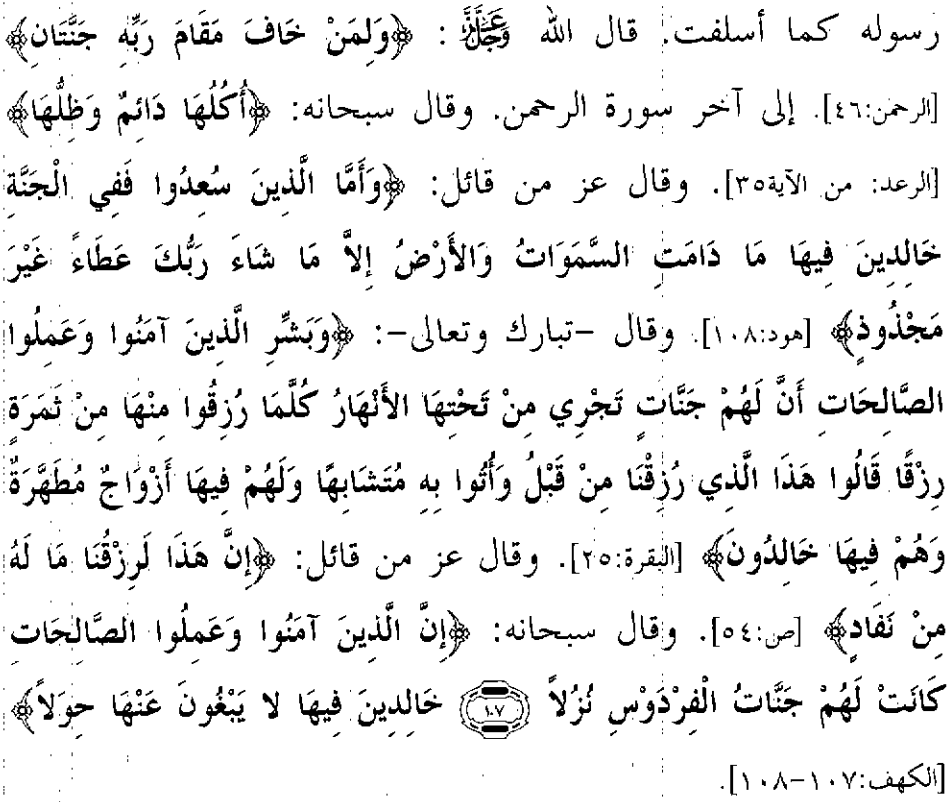 رسوله كما أسلفت. قال الله عَزَّ وَجَلَّ : ﴿وَلِمَنْ خَافَ مَقَامَ رَبِّهِ جَنَّتَانِ﴾
[الرحمن:٤٦]. إلى آخر سورة الرحمن. وقال سبحانه: ﴿أُكُلُهَا دَائِمٌ وَظِلُّهَا﴾
[الرعد: من الآية٣٥]. وقال عز من قائل: ﴿وَأَمَّا الَّذِينَ سُعِدُوا فَفِي الْجَنَّةِ
خَالِدِينَ فِيهَا مَا دَامَتِ السَّمَوَاتُ وَالأَرْضُ إِلاَّ مَا شَاءَ رَبُّكَ عَطَاءً غَيْرَ
مَجْذُوذٍ﴾ [هود:١٠٨]. وقال –تبارك وتعالى–: ﴿وَبَشِّرِ الَّذِينَ آمَنُوا وَعَمِلُوا
الصَّالِحَاتِ أَنَّ لَهُمْ جَنَّاتٍ تَجْرِي مِنْ تَحْتِهَا الأَنْهَارُ كُلَّمَا رُزِقُوا مِنْهَا مِنْ ثَمَرَةٍ
رِزْقًا قَالُوا هَذَا الَّذِي رُزِقْنَا مِنْ قَبْلُ وَأُتُوا بِهِ مُتَشَابِهًا وَلَهُمْ فِيهَا أَزْوَاجٌ مُطَهَّرَةٌ
وَهُمْ فِيهَا خَالِدُونَ﴾ [البقرة:٢٥]. وقال عز من قائل: ﴿إِنَّ هَذَا لَرِزْقُنَا مَا لَهُ
مِنْ نَفَادٍ﴾ [ص:٥٤]. وقال سبحانه: ﴿إِنَّ الَّذِينَ آمَنُوا وَعَمِلُوا الصَّالِحَاتِ
كَانَتْ لَهُمْ جَنَّاتُ الْفِرْدَوْسِ نُزُلاً ١٠٧ خَالِدِينَ فِيهَا لا يَبْغُونَ عَنْهَا حِوَلاً﴾
[الكهف:١٠٧–١٠٨].